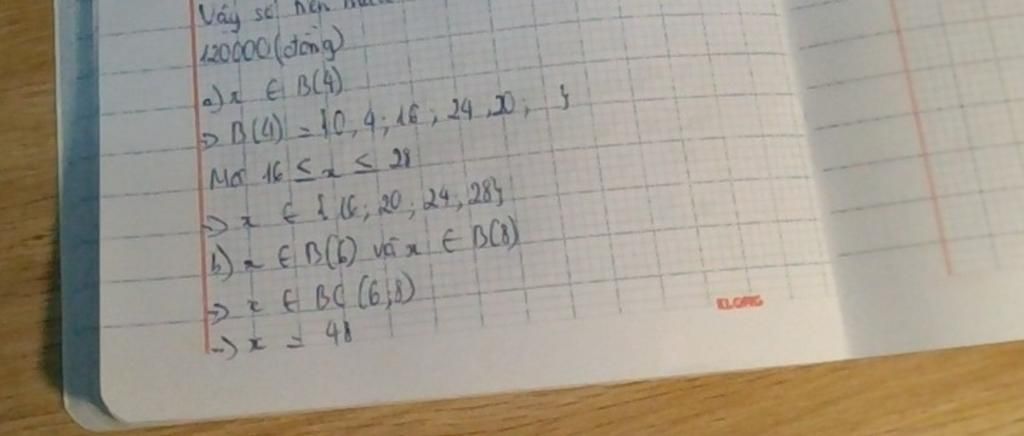 Vậy số
120000 (đồng)
a) x ∈ B(4)
=> B(4) = {0, 4; 16; 24, 20; }
Mà 16 ≤ x ≤ 28
=> x ∈ {16; 20; 24; 28}
b) x ∈ B(6) và x ∈ B(8)
=> x ∈ BC (6,8)
=> x = 48
KLONG